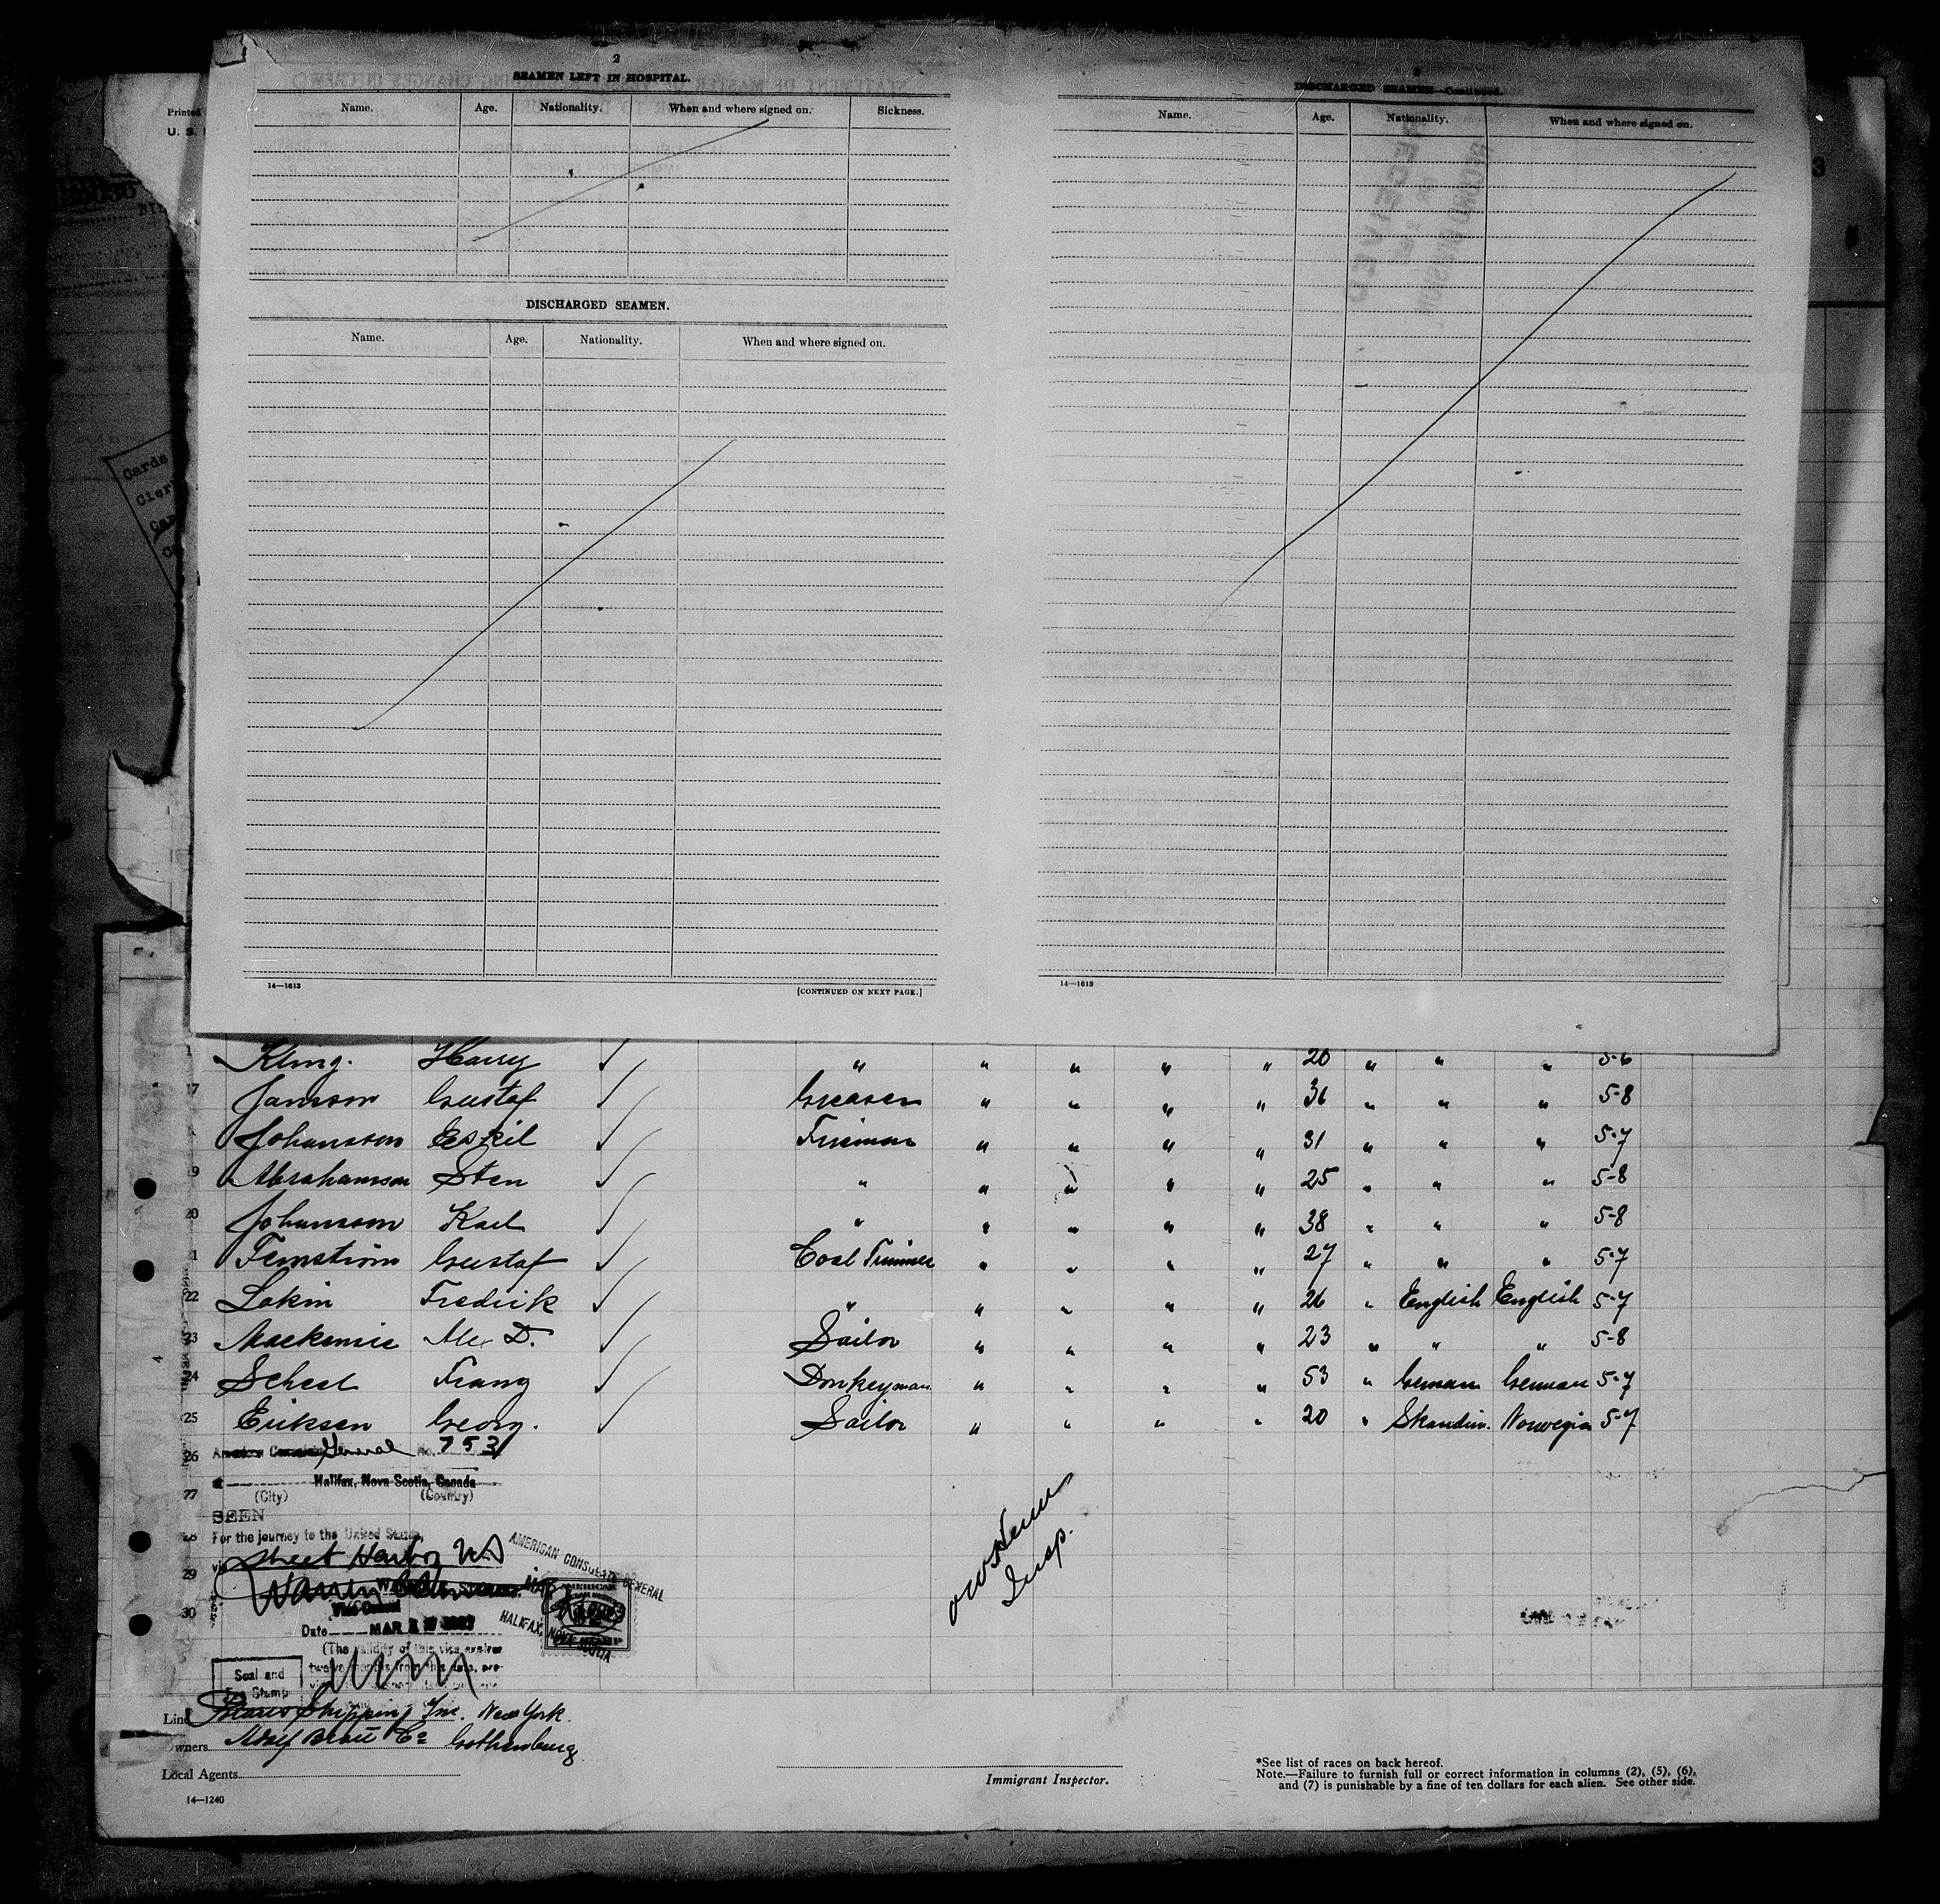 2
SEAMEN LEFT IN HOSPITAL.
Name. Age. Nationality. When and where signed on. Sickness.
DISCHARGED SEAMEN.
Name. Age. Nationality. When and where signed on.
14—1613 [CONTINUED ON NEXT PAGE.]
3
DISCHARGED SEAMEN—Continued.
Name. Age. Nationality. When and where signed on.
14—1613
Printed
U. S.
Cards
Cler
3
Kling. Harry " " " " " 20 " " " 5-6
17 Jansson Gustaf Greaser " " " " 36 " " " 5-8
Johansson Eskil Fireman " " " " 31 " " " 5-7
19 Abrahamson Sten " " " " " 25 " " " 5-8
20 Johansson Karl " " " " " 38 " " " 5-8
1 Fernström Gustaf Coal Trimmer " " " " 27 " " " 5-7
22 Lakin Fredrik " " " " " 26 " English English 5-7
23 Mackenzie Alex D. Sailor " " " " 23 " " " 5-8
24 Scheel Franz Donkeyman " " " " 53 " German German 5-7
25 Eriksen Georg. Sailor " " " " 20 " Skandin. Norwegia 5-7
26 American General No. 753
Halifax, Nova Scotia, Canada
27 (City) (Country)
SEEN
28 For the journey to the United States,
29 via Sheet Harbor NS
Warren
Vice Consul
30
Date MAR
(The validity of this visa expires
twelve months from this date,
Seal and
Fee Stamp
AMERICAN CONSULATE GENERAL
HALIFAX, NOVA SCOTIA
AMERICAN
Insp.
Line Shipping Inc. New York.
Owners Adolf Bratt Co Gothenburg
Local Agents
14—1240
Immigrant Inspector.
*See list of races on back hereof.
Note.—Failure to furnish full or correct information in columns (2), (5), (6),
and (7) is punishable by a fine of ten dollars for each alien. See other side.